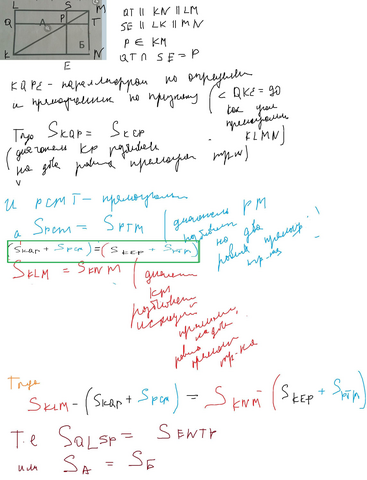 L S M
Q A P T
Б
K E N
QT || KN || LM
SE || LK || MN
P ∈ KM
QT ∩ SE = P
KQPE - параллелограм по определен
и прямоугольник по признаку ( < QKE = 90
как угол
прямоугольн
KLMN )
Тогда S KQP = S KEP
( диагональ KP разбивает
на два равных прямоуг треуг )
и PSMT - прямоугольн
а S PSM = S PTM ( диагональ PM
разбивает
на два
равных прямоуг.
тр-ка
(S KQP + S PSM) = (S KEP + S PTM)
S KLM = S KNM ( диагональ
KM
разбивает
исходный
прямоугольн.
на два
равных
прямоуг
тр-ка
Тогда
S KLM - (S KQP + S PSM) = S KNM - (S KEP + S PTM)
Т.е S QLSP = S ENTP
или S A = S Б